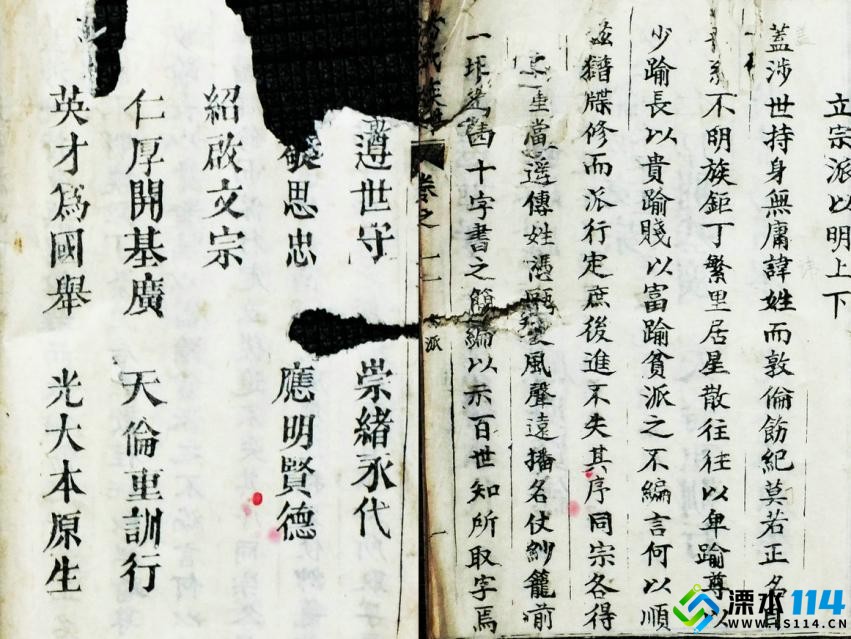 立宗派以明上下
蓋涉世持身無庸諱姓而敦倫飭紀莫若正名
不明族鉅丁繁里居星散往往以卑踰尊以
少踰長以貴踰賤以富踰貧派之不編言何以順
籍牒修而派行定庶後進不失其序同宗各得
當遥傳姓憑 風聲遠播名仗紗籠前
一 舊十字書之簡編以示百世知所取字焉
卷之一
派
遵世守 崇緒永代
思忠 應明賢德
紹啟文宗
仁厚開基廣 天倫重訓行
英才為國舉 光大本原生
溧水114
LS114.CN